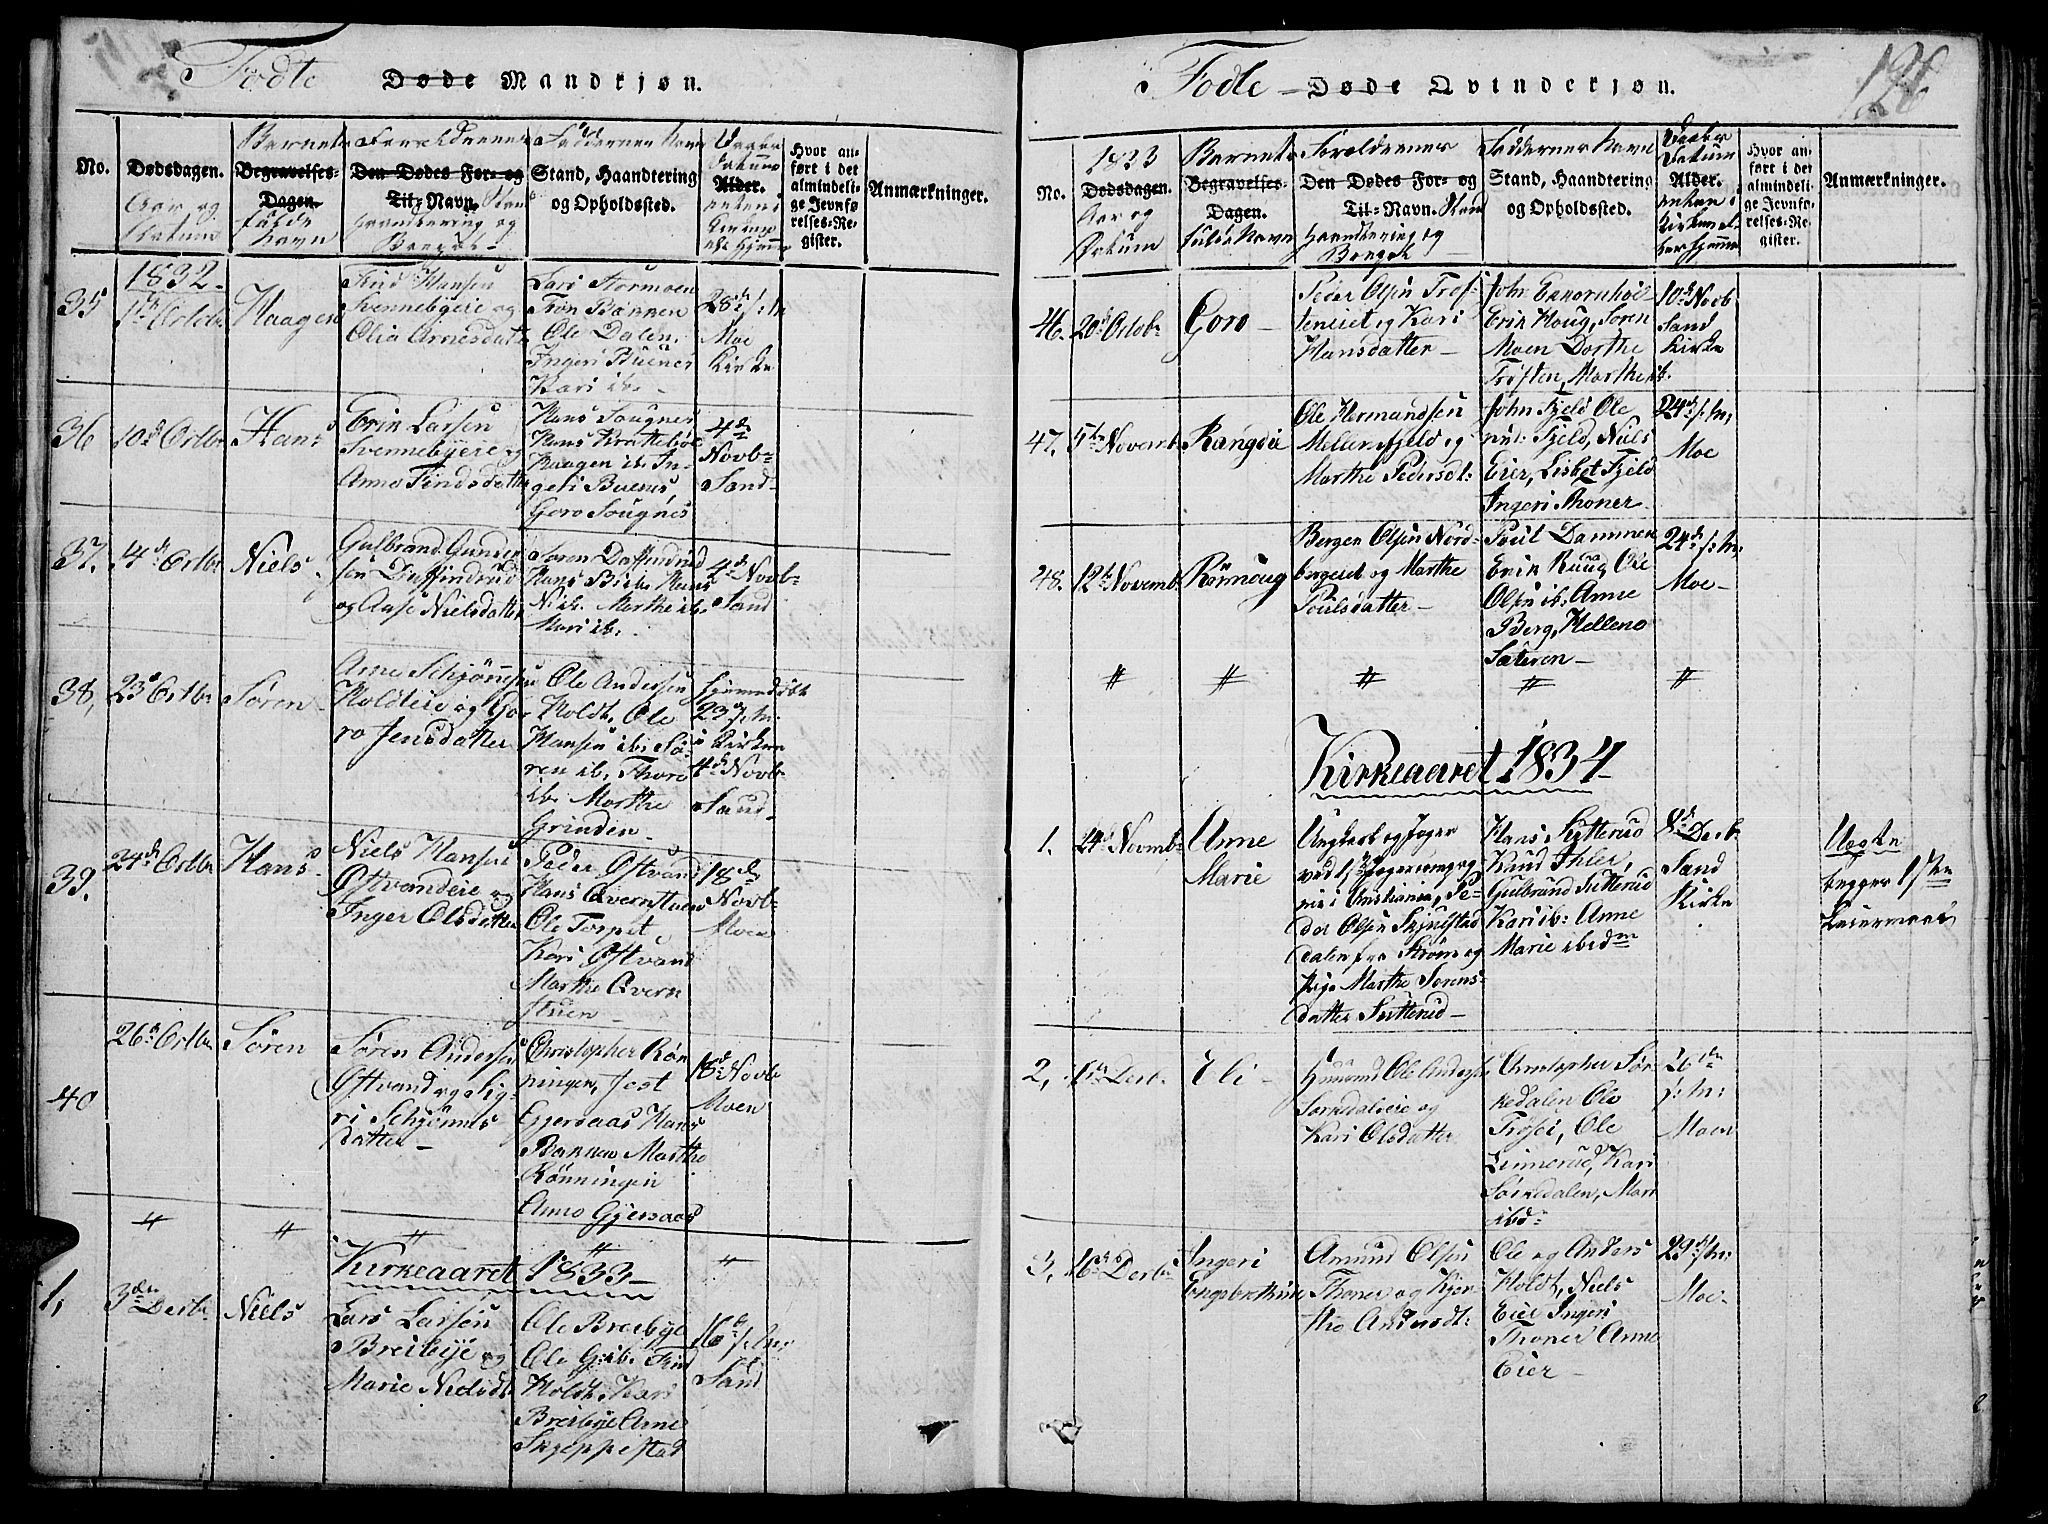 Fødte Døde Mandkjøn.
No.
Dødsdagen.
Aar og
Datum
Barnets
Begravelses-
Dagen.
fulde
Navn
Forældrenes
Den Dødes For- og
Til-Navn. Stand
Haandtering og
Bopæl
Faddernes Navn
Stand, Haandtering
og Opholdssted.
Daabs
Datum
Alder.
enten i
Kirken
Hvor an-
ført i det
almindeli-
ge Jevnfø-
relses-Re-
gister.
Anmærkninger.
35
1832
1ste Octbr
Haagen
Find Hansen
Svennebyeie og
Olia Arnesdatt
Lars Stormoen
Iron Bakken
Ole Dalen,
Ingeri Buenes
Kari ib.
28de s: m
Moe
Kirke
36
10de Octbr
Hans
Erik Larsen
Svennebyeie og
Anne Findsdatter
Hans Sougnes
Hans Krattebøl
Haagen ib. In-
geri Buenes,
Goro Sougnes
4de
Novb
Sand
37.
14de Octbr
Niels
Gulbrand Gunder
sen Daffindrud
og Aase Nielsdatter
Søren Daffindrud
Hans Bie, Hans
N. ib. Marthe ib.
Mari ib.
4de Novb
Sand
38,
23de Octbr
Søren
Arne Schjønnesen
Holdteie og Go-
ro Jensdatter
Ole Andersen
Holdt, Ole
Hansen ib. Sø-
ren ib. Thore
ib. Marthe
Grinden
Hjemmedøbt
23de s. m.
i Kirken
4de Novb
Sand
39.
24de Octbr
Hans
Niels Hansen
Østvandeie og
Inger Olsdatter
Peder Østvand
Hans Qvernstuen
Ole Torpet
Kari Østvand
Marthe Qvern
stuen
18de
Novb
Moen
40
26de Octbr
Søren
Søren Andersen
Østvand og Sig-
ri Schjønnes
datter
Christopher Røn
ningen, Jost
Gjersaas Hans
Bakken Marthe
Rønningen
Anne Gjersaas
18de Novb
Moen
Kirkeaaret 1833
1,
3den Decbr
Niels
Lars Larsen
Breibye og
Marie Nielsdt
Ole Breibye
Ole G. ib. Find
Holdt, Kari
Breibye Anne
Skjeppestad
16de s: m:
Sand
Fødte Døde Qvindekjøn.
126
No.
1833
Dødsdagen.
Aar og
Datum
Barnets
Begravelses-
Dagen.
fulde Navn
Forældrenes
Den Dødes For- og
Til-Navn. Stand
Haandtering og
Bopæl
Faddernes Navn
Stand, Haandtering
og Opholdssted.
Daabs
Datum
Alder.
enten i
Kirken el-
ler hjemme
Hvor an-
ført i det
almindeli-
ge Jevnfø-
relses-Re-
gister.
Anmærkninger.
46.
20de Octobr
Goro
Peder Olsen Trøf-
teneiet og Kari
Hansdatter
John Ekornhol
Erik Houg, Søren
Moen Dorthe
Trøften, Marthe ib.
10de Novb
Sand
Kirke
47.
5te Novemb
Rangdie
Ole Hermandsen
Mellemfjeld og
Marthe Pedersdt:
John Fjeld Ole
Fjeld, Niels
Eier, Lisbet Fjeld
Ingeri Thoner
24de s: m:
Moe
48.
12te Novemb
Rønnoug
Bergen Olsen Nord-
bergeiet og Marthe
Poulsdatter
Poul Dammen
Erik Ruud, Ole
Olsen ib: Anne
Berg, Hellene
Sæteren
24de s: m:
Moe
Kirkeaaret 1834
1.
24de Novmb
Anne
Marie
Ungkarl og Jæger
ved
i Christiania, Pe-
der Olsen Skjulstad
dalen fra Strøm og
Pige Marthe Sørens-
datter Sutterud
Hans Sutterud
Knud Ihler,
Gulbrand Sutterud
Kari ib: Anne
Marie ibidm
8de Decb
Sand
Kirke
Uægte
begges 1ste
Leiermaal
2,
1ste Decb.
Eli
Huusmd Ole Anders
Sørkedaleie og
Kari Olsdatter
Christopher Sør-
kedalen Ole
Trøsei, Ole
Linnerud, Kari
Sørkedalen, Mari
ibd
26de
s: m:
Moen
3,
16de Decbr
Ingeri
Engebrethine
Amund Olsen
Thoner og Kjer-
stie Andersdt:
Ole og Anders
Holdt, Niels
Eier Ingeri
Thoner Anne
Eier
29de s: m:
Moe